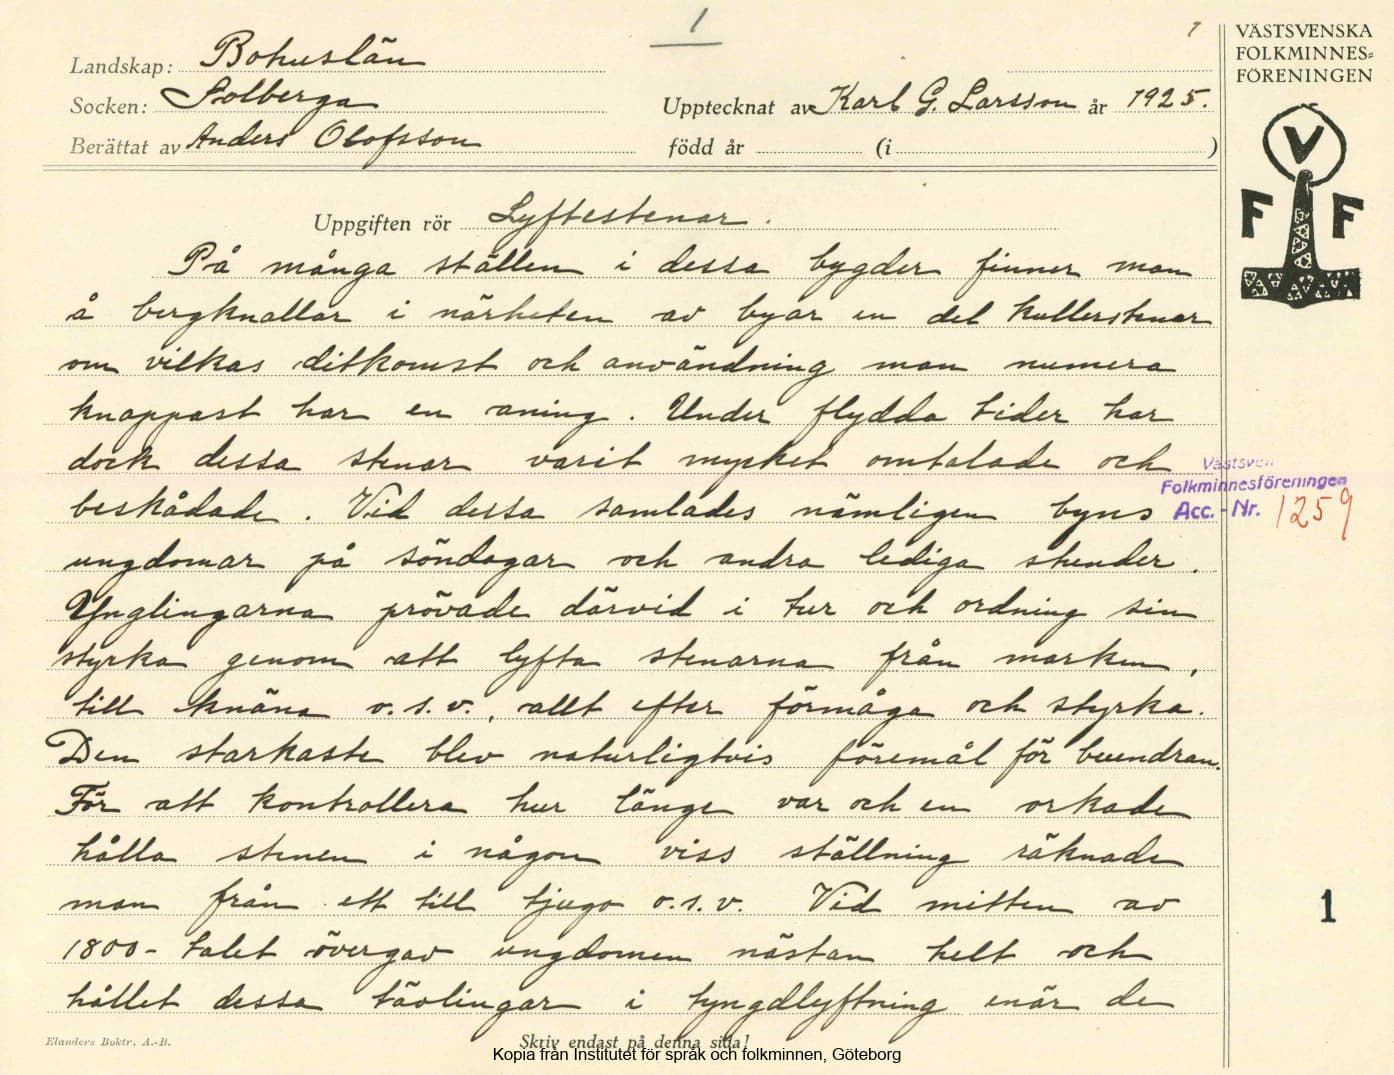 1
7
VÄSTSVENSKA
FOLKMINNES=
FÖRENINGEN
Landskap: Bohuslän
Socken: Solberga
Upptecknat av Karl G. Larsson år 1925.
Berättat av Anders Olofsson
född år (i )
V
F F
Uppgiften rör Lyftestenar.
På många ställen i dessa bygder finner man
å bergknallar i närheten av byar en del kullerstenar
om vilkas ditkomst och användning man numera
knappast har en aning. Under flydda tider har
dock dessa stenar varit mycket omtalade och
beskådade. Vid dessa samlades nämligen byns
Västsven
Folkminnesföreningen
Acc. - Nr. 1259
ungdomar på söndagar och andra lediga stunder.
Ynglingarna prövade därvid i tur och ordning sin
styrka genom att lyfta stenarna från marken,
till knäna o.s.v., allt efter förmåga och styrka.
Den starkaste blev naturligtvis föremål för beundran.
För att kontrollera hur länge var och en orkade
hålla stenen i någon viss ställning räknade
man från ett till tjugo o.s.v. Vid mitten av
1800-talet övergav ungdomen nästan helt och
hållet dessa tävlingar i tyngdlyftning enär de
1
Elanders Boktr. A.-B.
Skriv endast på denna sida!
Kopia från Institutet för språk och folkminnen, Göteborg